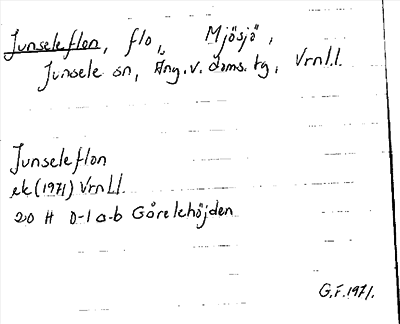 Junseleflon, flo, Mjösjö,
Junsele sn, Ång.v. doms.tg, Vrnll.
Junseleflon
ek (1971) Vrnll.
20 H 0-1 a-b Gårelehöjden
G.F. 1971.